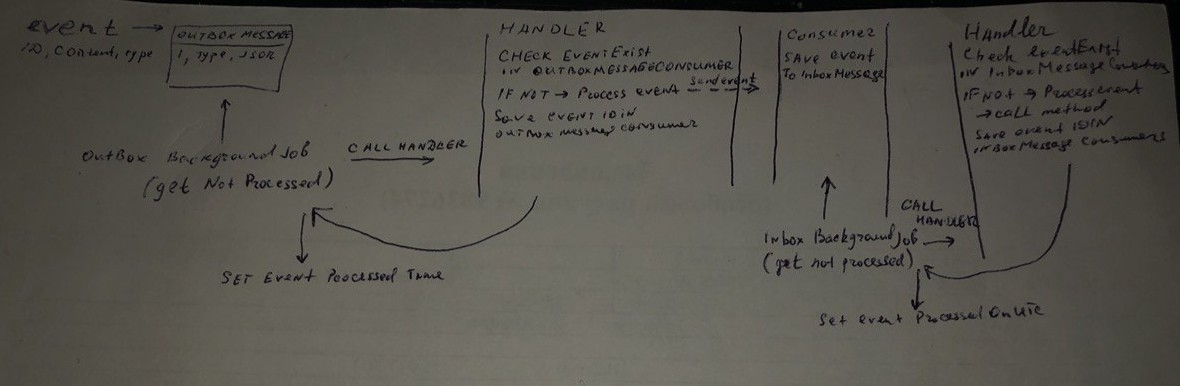 event →
ID, Content, type
OUTBOX MESSAGE
1, Type, JSON
OutBox BackgroundJob
(get Not Processed)
CALL HANDLER
SET Event Processed Time
HANDLER
CHECK EVENT EXIST
IN OUTBOXMESSAGECONSUMER
IF NOT → Process event
Save EVENT ID IN
OutBox message consumer
send event
Consumer
SAVE event
To InboxMessage
Inbox BackgroundJob →
(get not processed)
CALL
HANDLER
Set event ProcessedOnUTC
Handler
Check eventExist
IN InboxMessageConsumers
IF NOT → Process event
→ call method
SAVE event ID IN
INBoxMessage Consumers